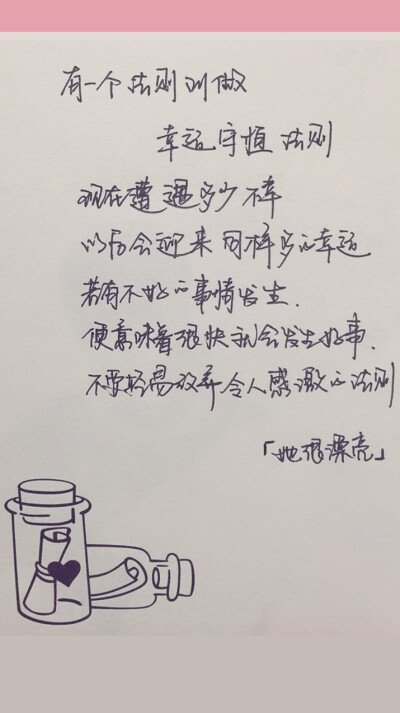 有一个法则叫做
幸运守恒法则
现在遭遇多少不幸
以后会迎来同样多的幸运
若有不好的事情发生.
便意味着很快就会发生好事.
不要轻易放弃令人感激的法则
「她很漂亮」